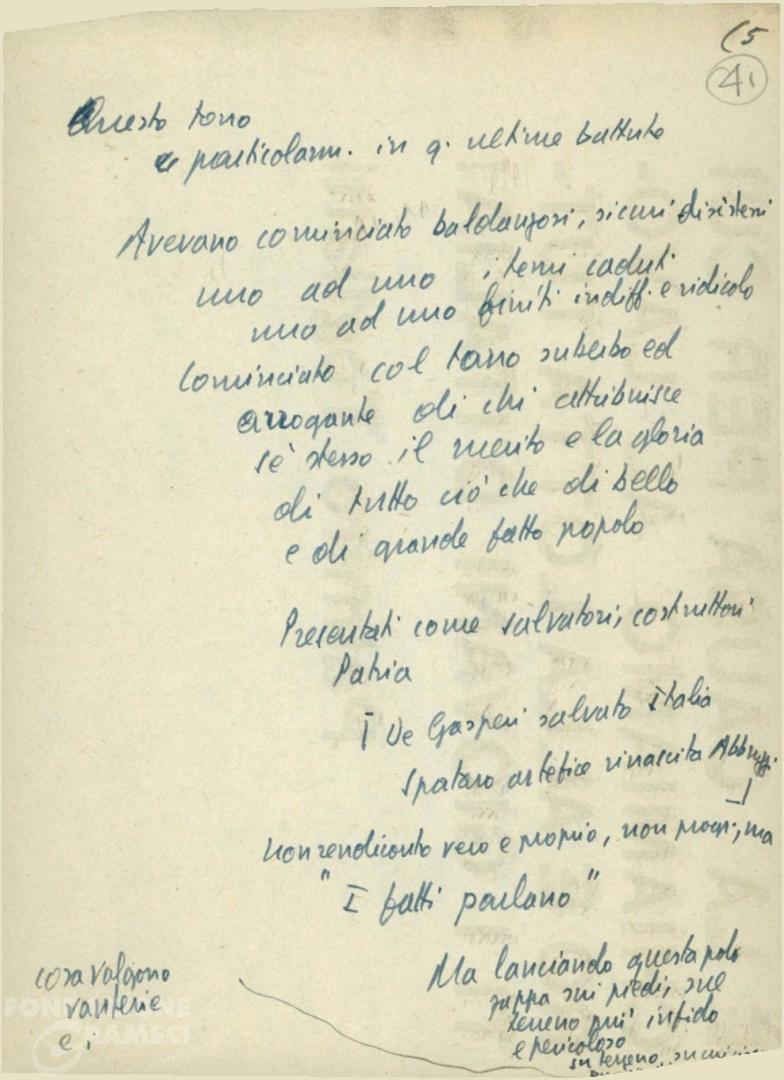 (5
41
Questo tono
e particolarm. in q. ultime battute
Avevano cominciato baldanzosi, sicuri di sistemi
uno ad uno i temi caduti
uno ad uno finiti indiff. e ridicolo
Cominciato col tono superbo ed
arrogante di chi attribuisce
sè stesso il merito e la gloria
di tutto ciò che di bello
e di grande fatto popolo
Presentati come salvatori, costruttori
Patria
[ De Gasperi salvato Italia
Spataro artefice rinascita Abbruzzi
]
Non rendiconto vero e proprio, non progr., ma
"I fatti parlano"
Ma lanciando questa
zappa sui piedi, sul
terreno più infido
e pericoloso
su terreno,
cosa valgono
vanterie
e i
FONDAZIONE
GRAMSCI